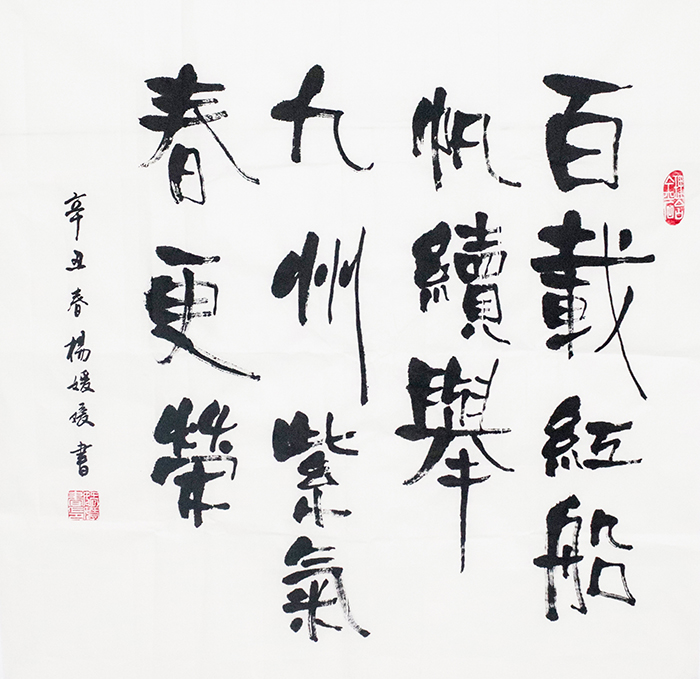 百載紅船
帆續舉
九州紫氣
春更榮
辛丑春楊媛媛書